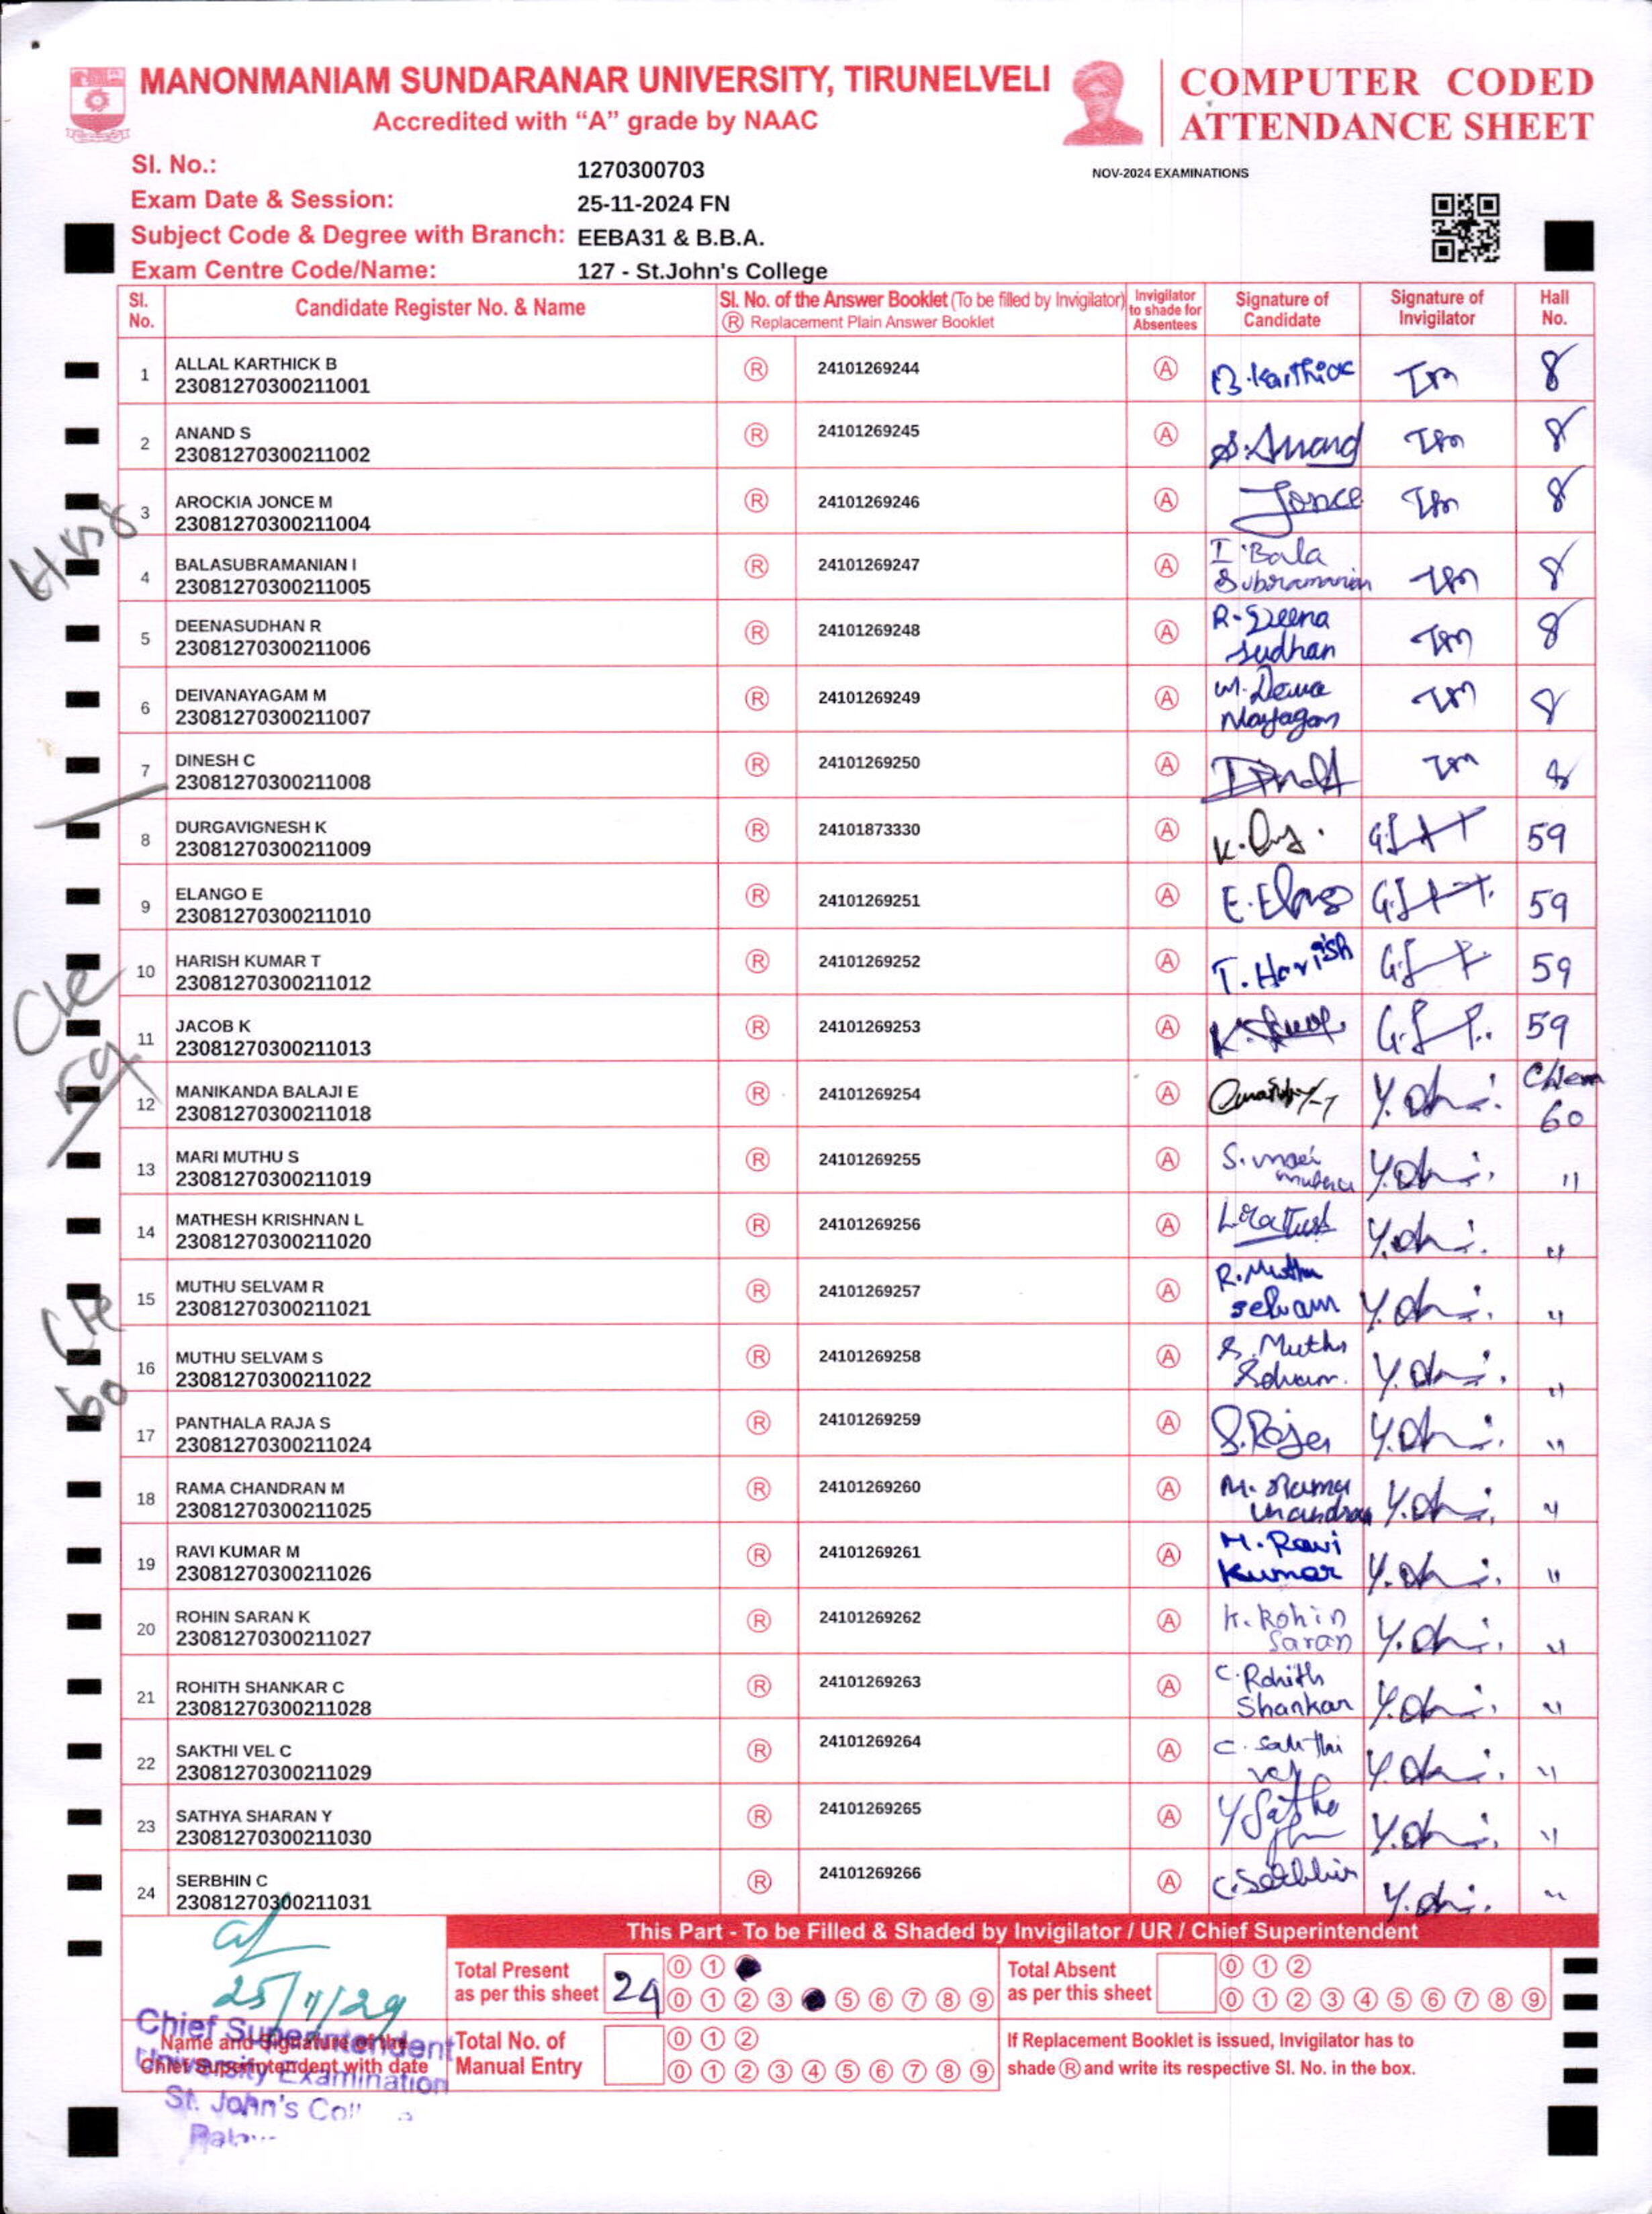 MANONMANIAM SUNDARANAR UNIVERSITY, TIRUNELVELI
Accredited with “A” grade by NAAC
COMPUTER CODED
ATTENDANCE SHEET
Sl. No.: 1270300703
NOV-2024 EXAMINATIONS
Exam Date & Session: 25-11-2024 FN
Subject Code & Degree with Branch: EEBA31 & B.B.A.
Exam Centre Code/Name: 127 - St.John's College
Sl. No. Candidate Register No. & Name Sl. No. of the Answer Booklet (To be filled by Invigilator) Ⓡ Replacement Plain Answer Booklet Invigilator to shade for Absentees Signature of Candidate Signature of Invigilator Hall No.
1 ALLAL KARTHICK B Ⓡ 24101269244 Ⓐ B.Karthick 8
23081270300211001
2 ANAND S Ⓡ 24101269245 Ⓐ S.Anand 8
23081270300211002
3 AROCKIA JONCE M Ⓡ 24101269246 Ⓐ Jonce 8
23081270300211004
4 BALASUBRAMANIAN I Ⓡ 24101269247 Ⓐ I Bala Subramanian 8
23081270300211005
5 DEENASUDHAN R Ⓡ 24101269248 Ⓐ R. Deena sudhan 8
23081270300211006
6 DEIVANAYAGAM M Ⓡ 24101269249 Ⓐ 8
23081270300211007
7 DINESH C Ⓡ 24101269250 Ⓐ 8
23081270300211008
8 DURGAVIGNESH K Ⓡ 24101873330 Ⓐ 59
23081270300211009
9 ELANGO E Ⓡ 24101269251 Ⓐ 59
23081270300211010
10 HARISH KUMAR T Ⓡ 24101269252 Ⓐ T. Harish 59
23081270300211012
11 JACOB K Ⓡ 24101269253 Ⓐ 59
23081270300211013
12 MANIKANDA BALAJI E Ⓡ 24101269254 Ⓐ Chem 60
23081270300211018
13 MARI MUTHU S Ⓡ 24101269255 Ⓐ "
23081270300211019
14 MATHESH KRISHNAN L Ⓡ 24101269256 Ⓐ "
23081270300211020
15 MUTHU SELVAM R Ⓡ 24101269257 Ⓐ R. Muthu selvam "
23081270300211021
16 MUTHU SELVAM S Ⓡ 24101269258 Ⓐ S. Muthu Selvam. "
23081270300211022
17 PANTHALA RAJA S Ⓡ 24101269259 Ⓐ S.Raja "
23081270300211024
18 RAMA CHANDRAN M Ⓡ 24101269260 Ⓐ M. Rama chandran "
23081270300211025
19 RAVI KUMAR M Ⓡ 24101269261 Ⓐ M. Ravi Kumar "
23081270300211026
20 ROHIN SARAN K Ⓡ 24101269262 Ⓐ K. Rohin Saran "
23081270300211027
21 ROHITH SHANKAR C Ⓡ 24101269263 Ⓐ C. Rohith Shankar "
23081270300211028
22 SAKTHI VEL C Ⓡ 24101269264 Ⓐ C. Sakthi vel "
23081270300211029
23 SATHYA SHARAN Y Ⓡ 24101269265 Ⓐ "
23081270300211030
24 SERBHIN C Ⓡ 24101269266 Ⓐ C.Serbhin "
23081270300211031
This Part - To be Filled & Shaded by Invigilator / UR / Chief Superintendent
Total Present as per this sheet 24 0 1
0 1 2 3 5 6 7 8 9
Total Absent as per this sheet 0 1 2
0 1 2 3 4 5 6 7 8 9
25/11/24
Chief Superintendent
University Examination
St. John's Coll
Name and Signature of the
Chief Superintendent with date
Total No. of Manual Entry 0 1 2
0 1 2 3 4 5 6 7 8 9
If Replacement Booklet is issued, Invigilator has to
shade Ⓡ and write its respective Sl. No. in the box.